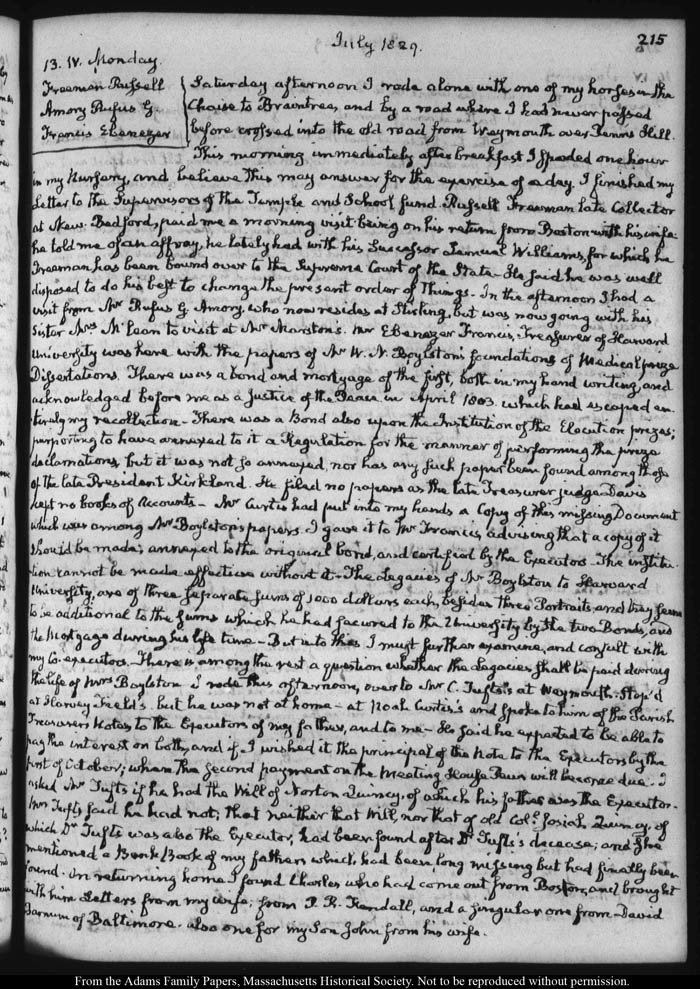 July 1829.
215
13. IV. Monday.
Freeman Russell
Amory Rufus G.
Francis Ebenezer
Saturday afternoon I rode alone with one of my horses in the
Chaise to Braintree, and by a road where I had never passed
before crossed into the old road from Weymouth over Penns Hill.
This morning immediately after breakfast I spaded one hour
in my Nursery, and believe this may answer for the exercise of a day. I finished my
Letter to the Supervisors of the Temple and School fund. Russell Freeman late Collector
at New-Bedford, paid me a morning visit being on his return from Boston with his wife.
he told me of an affray, he lately had with his Successor Lemuel Williams, for which he
Freeman has been bound over to the Supreme Court of the State. He said he was well
disposed to do his best to change the present order of Things. In the afternoon I had a
visit from Mr Rufus G. Amory, who now resides at but was now going with his
Sister Mrs McLean to visit at Mr Marston's. Mr Ebenezer Francis, Treasurer of Harvard
University was here with the papers of Mr W. N. Boylston's foundations of Medical prize
Dissertations. There was a bond and mortgage of the first, both in my hand writing, and
acknowledged before me as a Justice of the Peace in April 1803. which had escaped en-
tirely my recollection. There was a Bond also upon the Institution of the Elocution prizes;
purporting to have annexed to it a Regulation for the manner of performing the prize
declamations, but it was not so annexed, nor has any such paper been found among those
of the late President Kirkland. He filed no papers as the late Treasurer judge Davis
kept no books of Accounts. Mr Curtis had put into my hands a Copy of this missing Document
which was among Mr Boylston's papers. I gave it to Mr Francis, advising that a copy of it
should be made, annexed to the original bond, and certified by the Executors. The institu-
tion cannot be made effective without it. The Legacies of Mr Boylston to Harvard
University, are of three separate sums of 1000 dollars each, besides three Portraits, and they seem
to be additional to the sums which he had secured to the University by the two Bonds, and
the Mortgage during his life time. But into this I must further examine, and consult with
my Co-executors. There is among the rest a question whether the Legacies shall be paid during
the life of Mrs Boylston. I rode this afternoon, over to Mr C. Tufts's at Weymouth. Stop'd
at Harvey Field's. but he was not at home. at Noah Curtis's and spoke to him of the Parish
Treasurers Notes to the Executors of my father, and to me. He said he expected to be able to
pay the interest on both, and if I wished it the principal of the Note to the Executors by the
first of October; when the second payment on the Meeting House Pews will become due. I
asked Mr Tufts if he had the Will of Norton Quincy, of which his father was the Executor.
Mrs Tufts said he had not; that neither that Will, nor that of old Colo. Josiah Quincy, of
which Dr Tufts was also the Executor, had been found after Dr Tufts's decease; and she
mentioned a Bank Book of my father's which had been long missing but had finally been
found. On returning home I found Charles who had come out from Boston, and brought
with him Letters from my wife; from P. R. Fendall, and a singular one from David
Barnum of Baltimore. also one for my Son John from his wife.
From the Adams Family Papers, Massachusetts Historical Society. Not to be reproduced without permission.